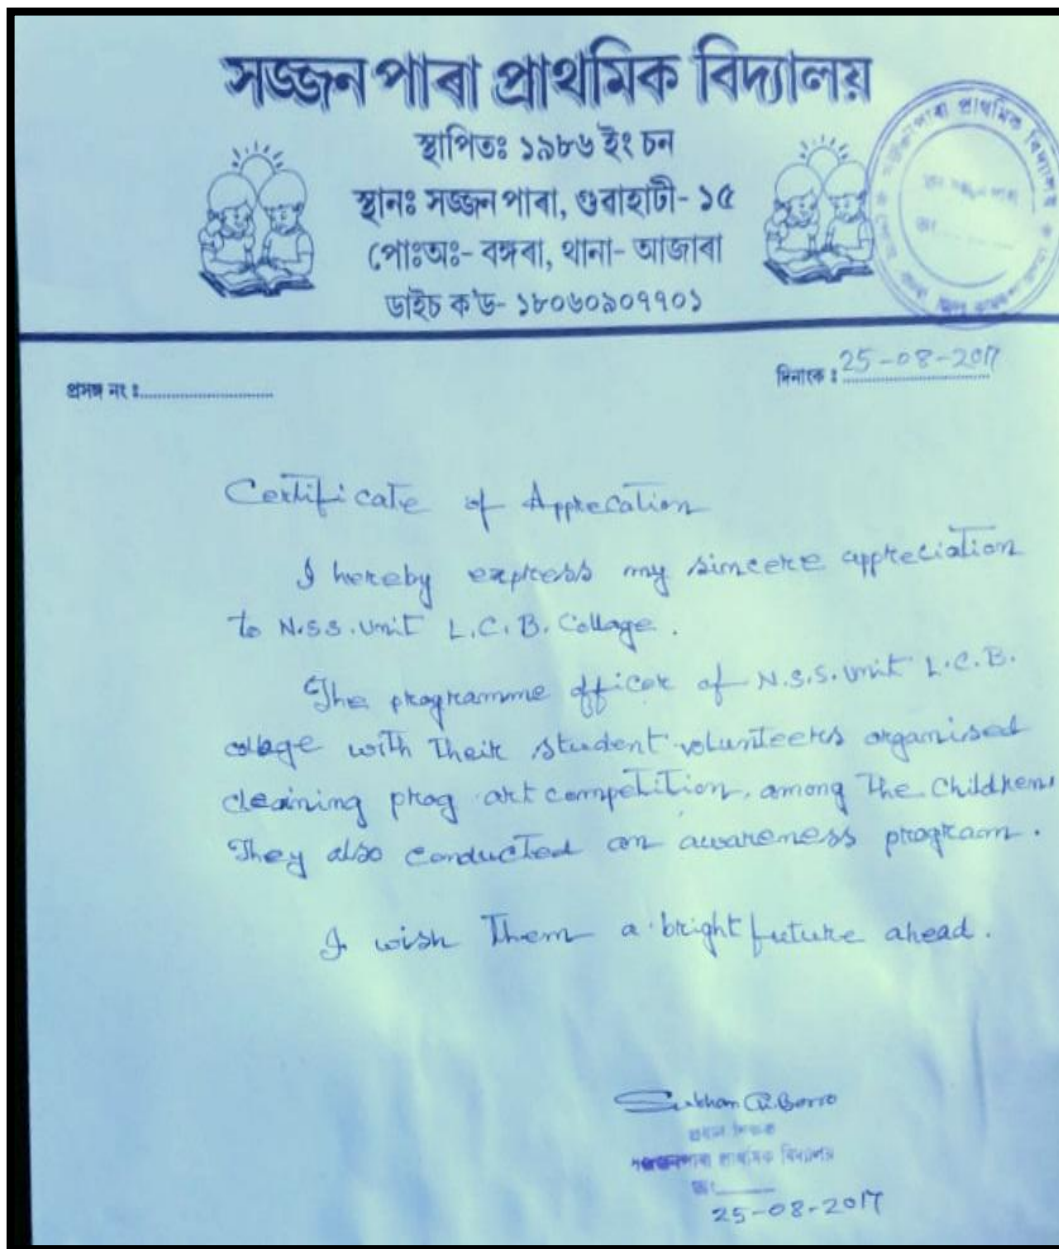 সজ্জন পাৰা প্ৰাথমিক বিদ্যালয়
স্থাপিতঃ ১৯৮৬ ইং চন
স্থানঃ সজ্জন পাৰা, গুৱাহাটী- ১৫
পোঃঅঃ- বঙ্গৰা, থানা- আজাৰা
ডাইচ ক'ড- ১৮০৬০৯০৭৭০১
প্ৰসঙ্গ নং ঃ
দিনাংক ঃ 25-08-2017
Certificate of Apprecation
I hereby express my sincere appreciation
to N.S.S. Unit L.C.B. Collage.
The programme officer of N.S.S. Unit L.C.B.
collage with Their student volunteers organised
cleaining prog art competition, among The Children.
They also conducted an awareness program.
I wish Them a bright future ahead.
প্ৰাথমিক বিদ্যালয়
25-08-2017